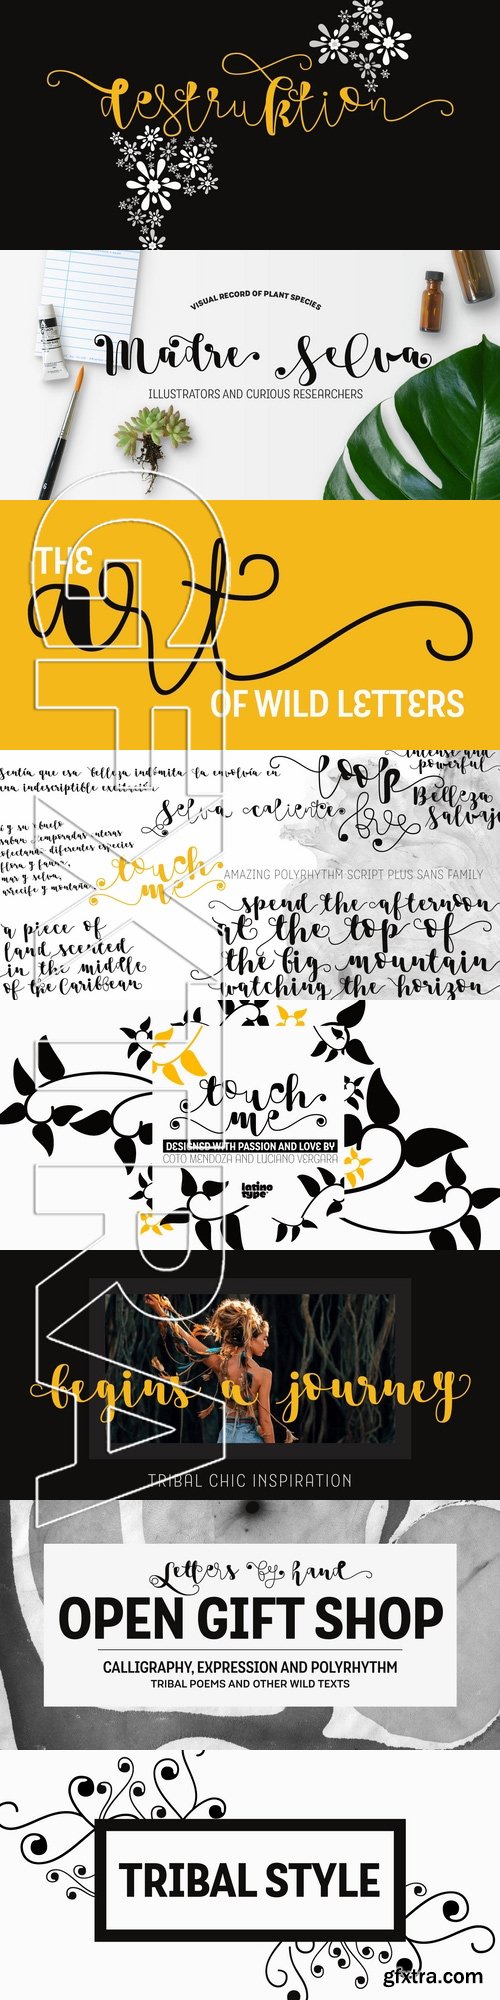 destruktion
VISUAL RECORD OF PLANT SPECIES
Madre Selva
ILLUSTRATORS AND CURIOUS RESEARCHERS
THE
art
OF WILD LETTERS
sentía que esa belleza indómita la envolvía en
una indescriptible excitación
selva caliente
loop
love
intense and
powerful
Belleza
Salvaje
i y su abuelo
saban temporadas enteras
colectando diferentes especies
flora y fauna,
mar y selva,
arrecife y montaña,
touch
me
AMAZING POLYRHYTHM SCRIPT PLUS SANS FAMILY
a piece of
land scented
in the middle
of the Caribbean
spend the afternoon
at the top of
the big mountain
watching the horizon
touch
me
DESIGNED WITH PASSION AND LOVE BY
COTO MENDOZA AND LUCIANO VERGARA
latino
type
begins a journey
TRIBAL CHIC INSPIRATION
Letters by hand
OPEN GIFT SHOP
CALLIGRAPHY, EXPRESSION AND POLYRHYTHM
TRIBAL POEMS AND OTHER WILD TEXTS
TRIBAL STYLE
GFXTRA
gfxtra.com